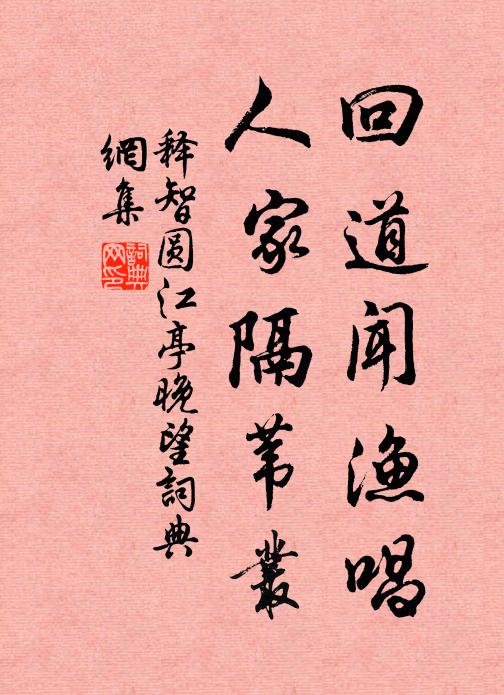 回道闻渔唱
人家隔苇丛
释智圆江亭晚望詞典
網集
詞典
网印